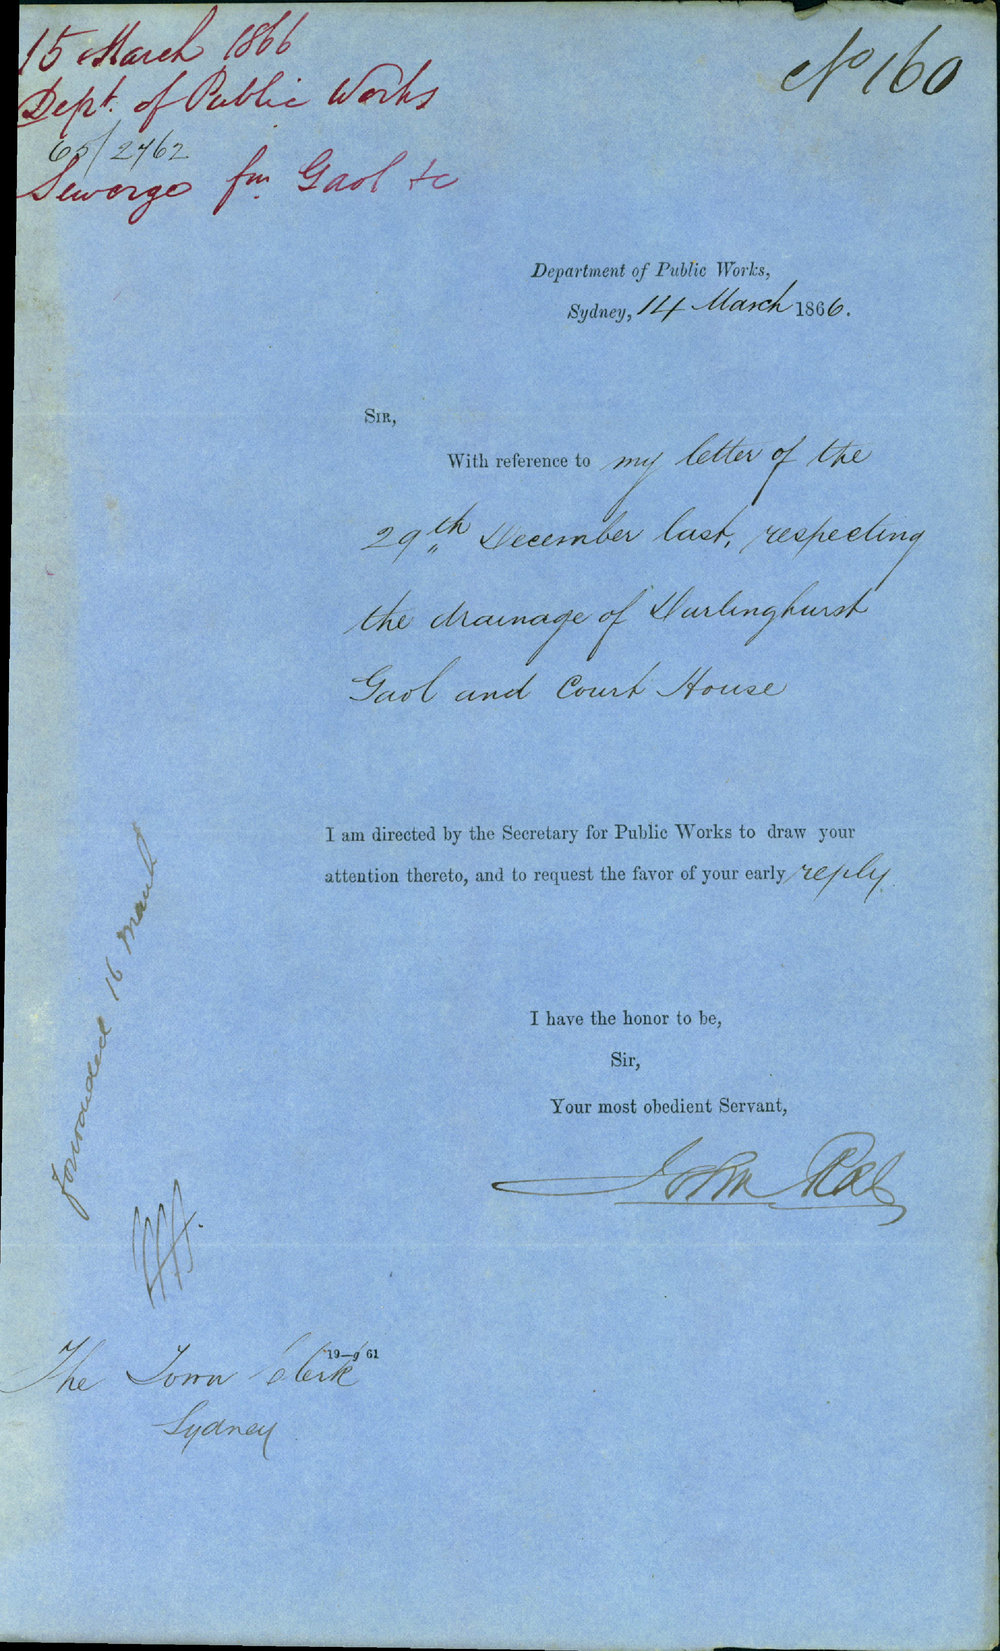 15 March 1866
Dept. of Public Works
65/2462
Sewerge fm Gaol &c
No 160
Department of Public Works,
Sydney, 14 March 1866.
SIR,
With reference to my letter of the
29th December last, respecting
the drainage of Darlinghurst
Gaol and Court House
I am directed by the Secretary for Public Works to draw your
attention thereto, and to request the favor of your early reply.
I have the honor to be,
Sir,
Your most obedient Servant,
John Rae
forwarded 16 March
19—9 61
The Town Clerk
Sydney